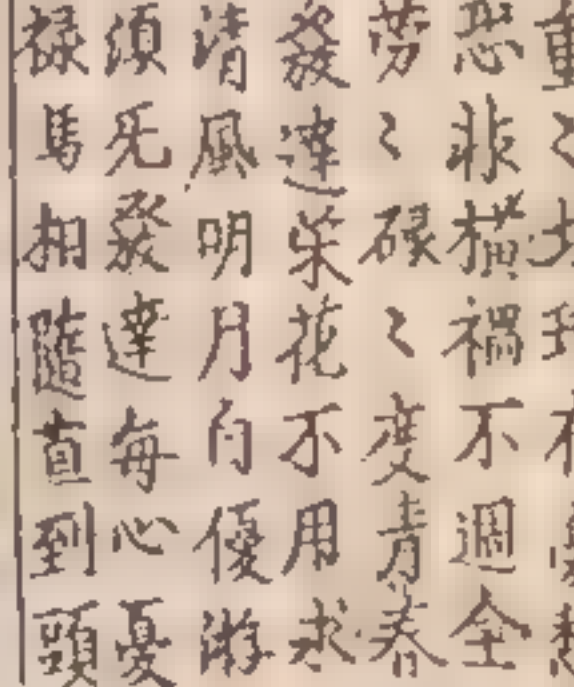 恐非橫禍不週全
劳〻碌〻度青春
發達榮花不用求
清風明月自優游
須旡發達每心憂
祿馬相隨直到頭